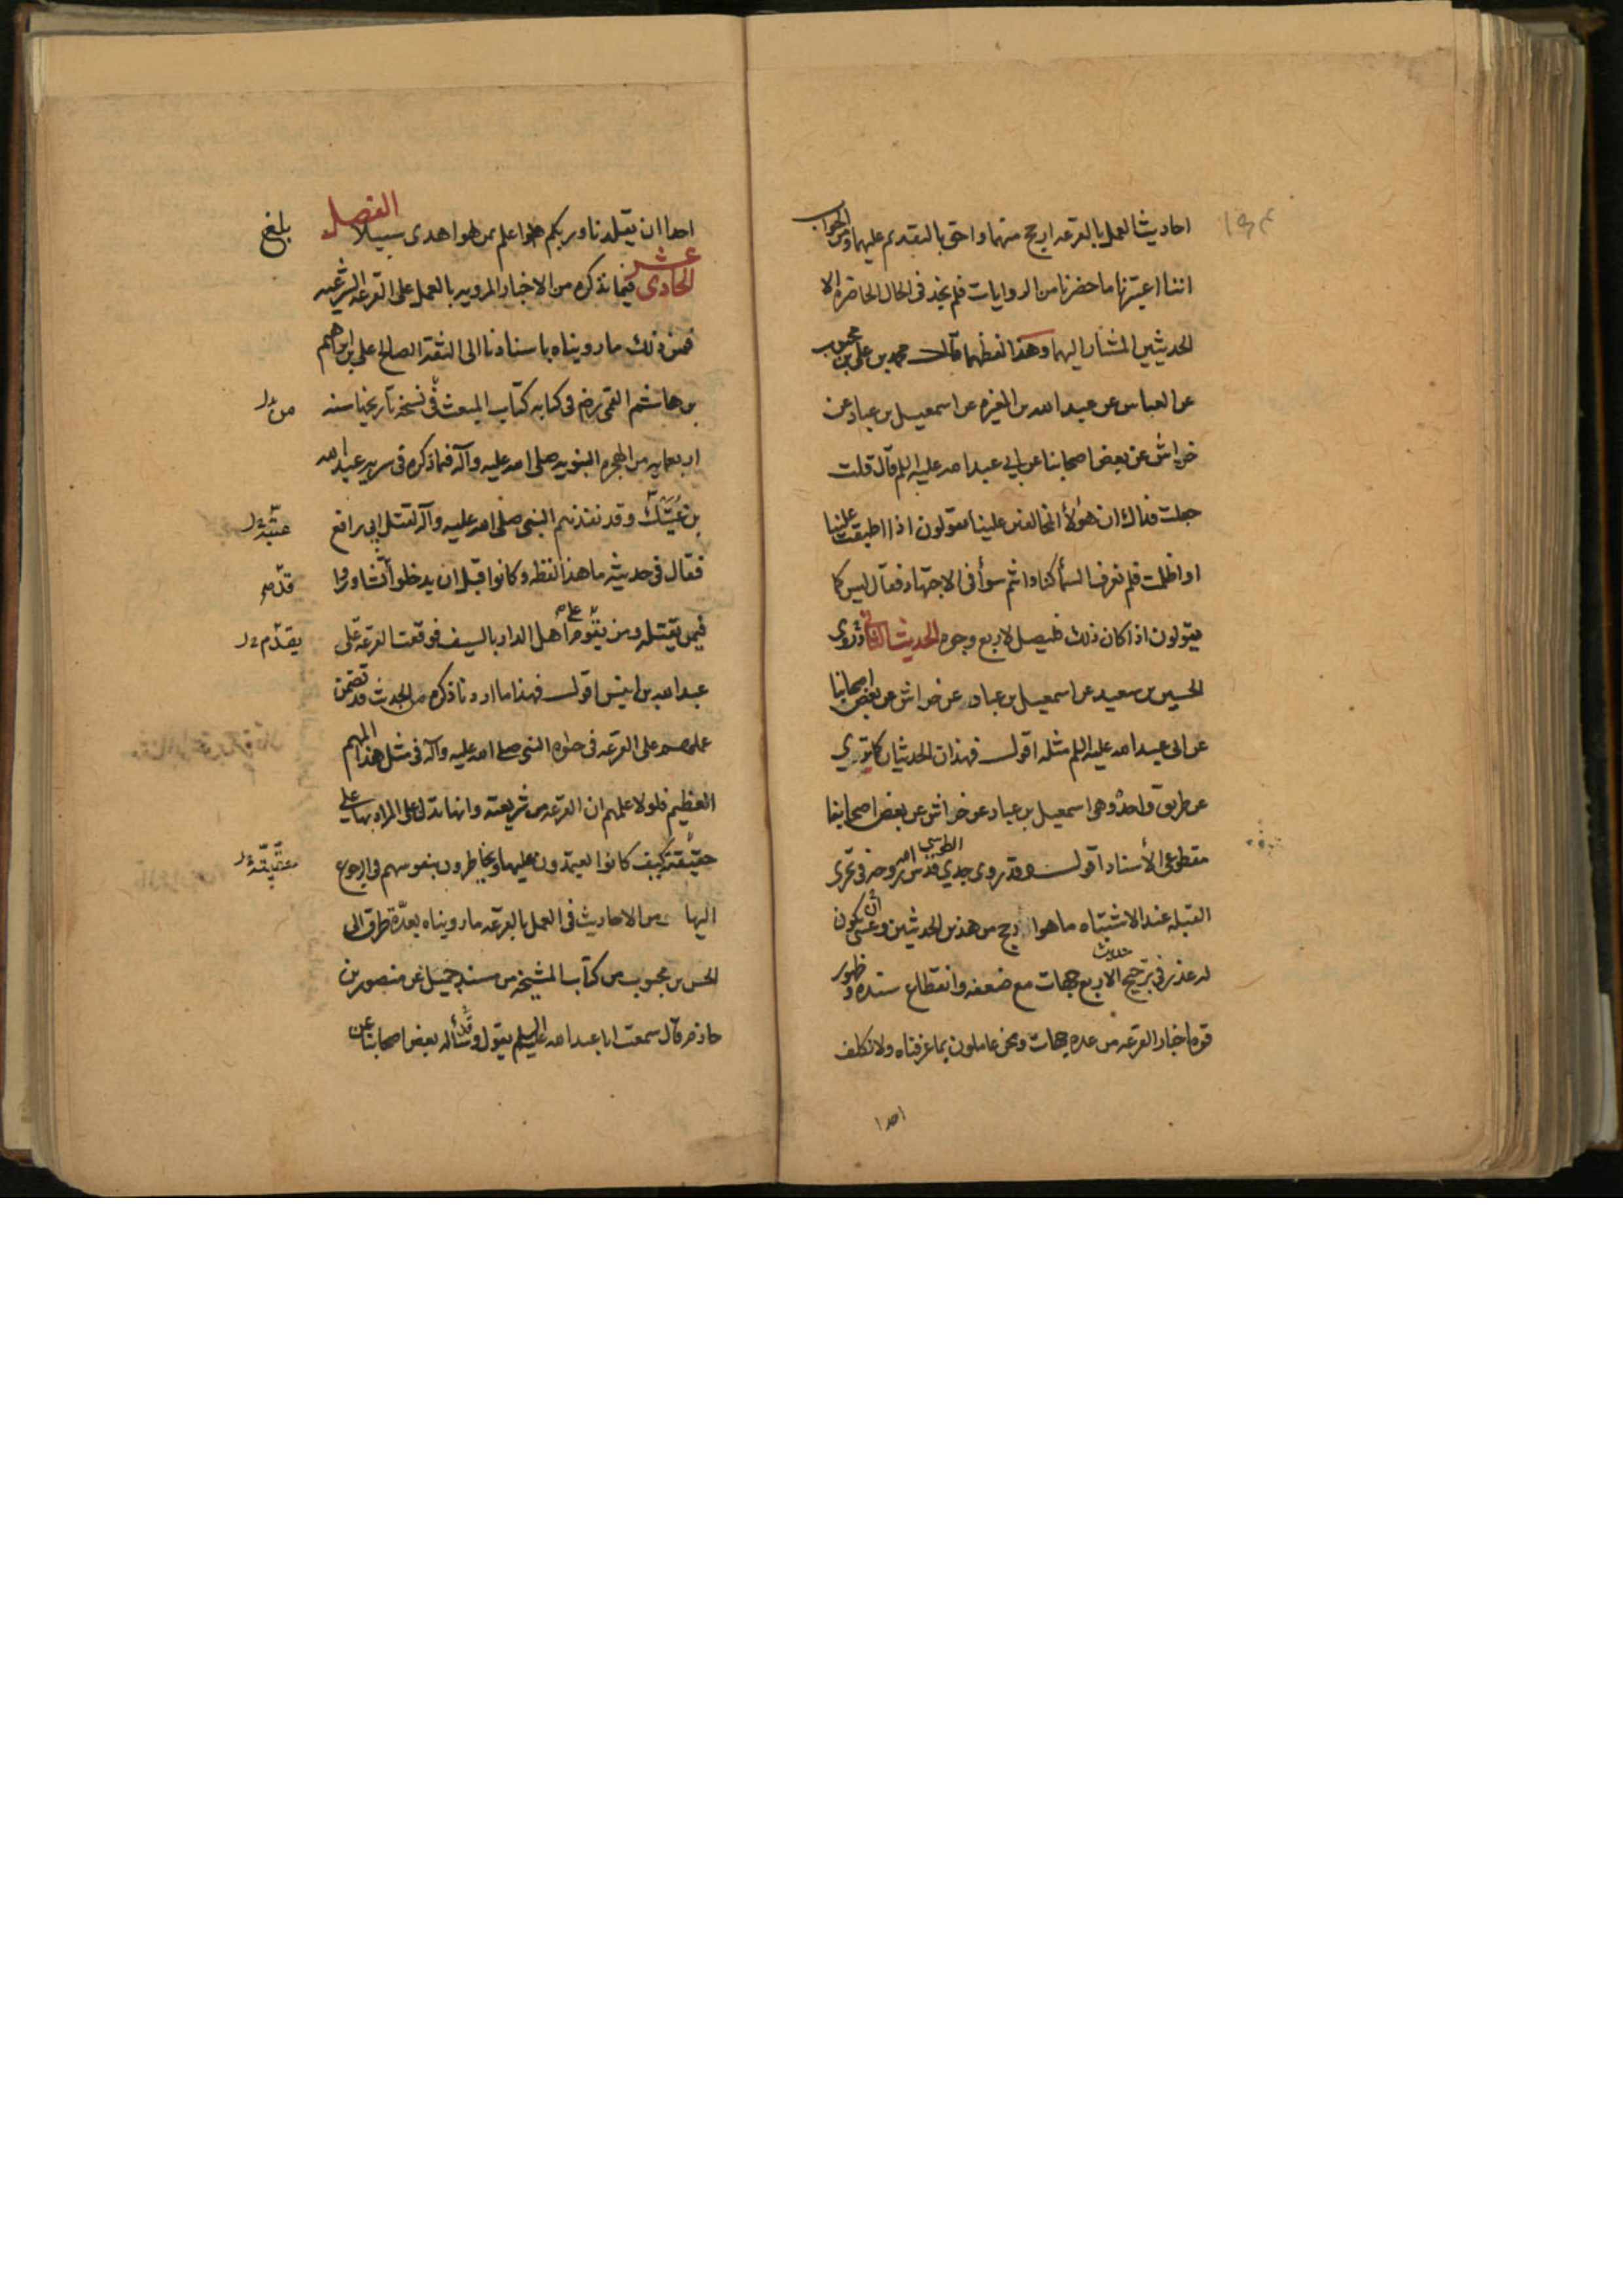 احاديث العمل بالقرعه ارجح منهما واحق بالتقديم عليهما ومن الجواب
اننا اعتبرنا ما حضرنا من الروايات فلم نجد فى الحال الحاضرة الا
الحديثين المشار اليهما وهذا لفظهما قال محمد بن على بن محبوب
عن العباس عن عبد الله بن المغيرة عن اسمعيل بن عباد عن
خراش عن بعض اصحابنا عن ابي عبد الله عليه السلم قال قلت
جعلت فداك ان هؤلأ المخالفين علينا يقولون اذا اطبقت علينا
او اظلمت فلم نعرف السمأ كنا وانتم سوأ فى الاجتهاد فقال ليس كما
يقولون اذا كان ذلك فليصل لاربع وجوه الحديث الثاني وروى
الحسين بن سعيد عن اسمعيل بن عباد عن خراش عن بعض اصحابنا
عن ابى عبد الله عليه السلم مثله اقول فهذان الحديثان كما ترى
عن طريق واحدة وهى اسمعيل بن عباد عن خراش عن بعض اصحابنا
مقطوعى الأسناد اقول وقد روى جدي الطوسي قدس الله روحه فى تحرى
القبله عند الاشتباه ما هو ارجح من هذين الحديثين وعسى أن يكون
له عذر فى ترجيح الاربع جهات مع ضعفه وانقطاع سنده وظهور
قوه اخبار القرعه من عده جهات ونحن عاملون بما عرفناه ولا نكلف
احدا
احدا ان يقلدنا وربكم هو اعلم بمن هو اهدى سبيلا الفصل
بلغ
الحادى عشر فيما نذكره من الاخبار المرويه بالعمل على القرعه الشرعيه
فمن ذلك ما رويناه باسنادنا الى الثقة الصالح على بن ابراهيم
بن هاشم القمى رضه فى كتابه كتاب المبعث فى نسخة تاريخها سنه
من
اربعمايه من الهجره النبويه صلى الله عليه وآله فما ذكره فى سريه عبد الله
بن عتيك وقد نفذهم النبى صلى الله عليه وآله لقتل ابي رافع
فقال فى حديثه ما هذا لفظه وكانوا قبل ان يدخلوا تشاوروا
فيمن يقتله ومن يقوم على اهل الدار بالسيف فوقعت القرعه على
يقدّم
عبد الله بن انيس اقول فهذا ما اردنا ذكره من الحديث قد تضمن
عملهم على القرعه فى حيوه النبى صلى الله عليه وآله فى مثل هذا المهم
العظيم فلولا علمهم ان القرعه من شريعته وانها تدل على المراد بها على
حقيقته كيف كانوا يعتمدون عليها ويخاطرون بنفوسهم فى الرجوع
اليها ومن الاحاديث فى العمل بالقرعه ما رويناه بعدّة طرق الى
الحسن بن محبوب من كتاب المشيخه من مسند جميل عن منصور بن
حازم قال سمعت ابا عبد الله عليه السلم يقول وقد سأله بعض اصحابنا عن